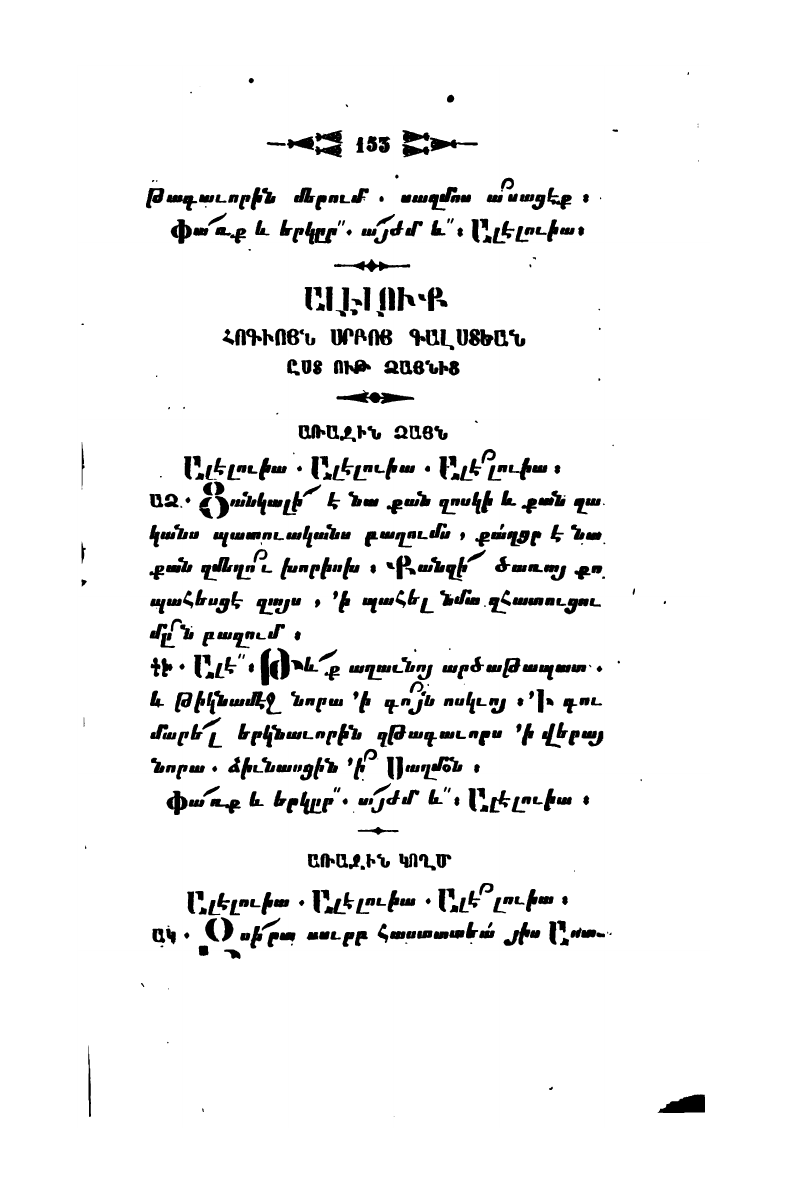 153
Թագաւորին մերում . սաղմոս ա՟սացէք ։
Փա՜ռք և երկըր՞. այժմ և՞։ Ալէլուիա։
ԱԼԷԼՈՒՔ
ՀՈԳԻՈՅՆ ՍՐԲՈՅ ԳԱԼՍՏԵԱՆ
ԸՍՏ ՈՒԹ ՁԱՅՆԻՑ
ԱՌԱՋԻՆ ՁԱՅՆ
Ալէլուիա . Ալէլուիա . Ալէլուիա ։
ԱՁ . Ցանկալի՜ է նա քան զոսկի և քան զա
կանս պատուականս բազումս , քաղցր է նա
քան զմեղու խորիսխ ։ Քանզի՜ ծառայ քո
պահեսցէ զայս , ՚ի պահել նմա զհատուցու
մըն բազում ։
Ալէ՞։ Թև՜ք աղաւնոյ արծաթապատ .
և թիկնամէջ նորա ՚ի գոյն ոսկւոյ ։ ՚Ի գու
մարե՜լ երկնաւորին զթագաւորս ՚ի վերայ
նորա . ձիւնասցին ՚ի Սաղմօն ։
Փա՜ռք և երկըր՞. այժմ և՞։ Ալէլուիա ։
ԱՌԱՋԻՆ ԿՈՂՄ
Ալէլուիա . Ալէլուիա . Ալէլուիա ։
ԱԿ . Զսի՜րտ սուրբ հաստատեա՛ յիս Աստ-